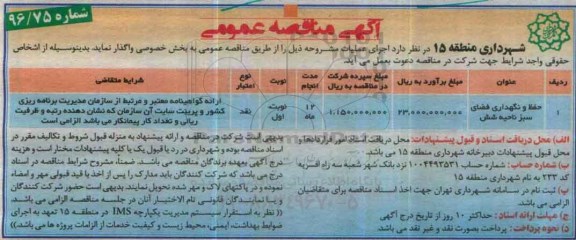 آگهی مناقصه عمومی
شماره ۹۶/۷۵
شهرداری منطقه ۱۵ در نظر دارد اجرای عملیات مشروحه ذیل را از طریق مناقصه عمومی به بخش خصوصی واگذار نماید بدینوسیله از اشخاص
حقوقی واجد شرایط جهت شرکت در مناقصه دعوت بعمل می آید.
ردیف عنوان مبلغ برآورد به ریال مبلغ سپرده شرکت در مناقصه مدت انجام نوبت نوع اعتبار شرایط متقاضی
۱ حفظ و نگهداری فضای سبز ناحیه شش ۲۳,۰۰۰,۰۰۰,۰۰۰ ۱,۱۵۰,۰۰۰,۰۰۰ ۱۲ ماه نوبت اول نقد ارائه گواهینامه معتبر و مرتبط از سازمان مدیریت برنامه ریزی کشور و پرینت سایت آن سازمان که نشان دهنده رتبه و ظرفیت ریالی و تعداد کار پیمانکار می باشد الزامی است
الف) محل دریافت اسناد و قبول پیشنهادات: محل دریافت اسناد امور قراردادها
محل قبول پیشنهادات دبیرخانه شهرداری منطقه ۱۵ می باشد.
ب) شماره حساب: شماره حساب ۱۰۰۴۴۹۲۵۳۱ نزد بانک شهر شعبه سه راه افسریه
کد ۲۳۳ به نام شهرداری منطقه ۱۵
پ) ثبت نام در سامانه شهرداری تهران جهت اخذ اسناد مناقصه برای متقاضیان
الزامی می باشد.
ج) مهلت ارائه اسناد: حداکثر ۱۰ روز از تاریخ درج آگهی
د) نحوه پرداخت: پرداخت بصورت نقد و غیر نقد می باشد.
شرکت در مناقصه و ارائه پیشنهاد به منزله قبول شروط و تکالیف مقرر در
اسناد مناقصه بوده و شهرداری در رد یا قبول یک یا کلیه پیشنهادات مختار است و هزینه
درج آگهی بعهده برندگان مناقصه می باشد. ضمنا، مشروح شرایط مناقصه در اسناد
درج می باشد که شرکت کنندگان باید مدارک را پس از اخذ با قید قبولی مهر و امضاء
نموده و در پاکتهای لاک و مهر شده تحویل نمایند. بدیهی است حضور شرکت کنندگان
یا نمایندگان قانونی تام الاختیار آنان در جلسه مناقصه الزامی می باشد.
(( نظر به استقرار سیستم مدیریت یکپارچه IMS در منطقه ۱۵ تعهد به اجرای
ضوابط بهداشت، ایمنی، محیط زیست و کیفیت خدمات از الزامات پروژه ها می باشد.))